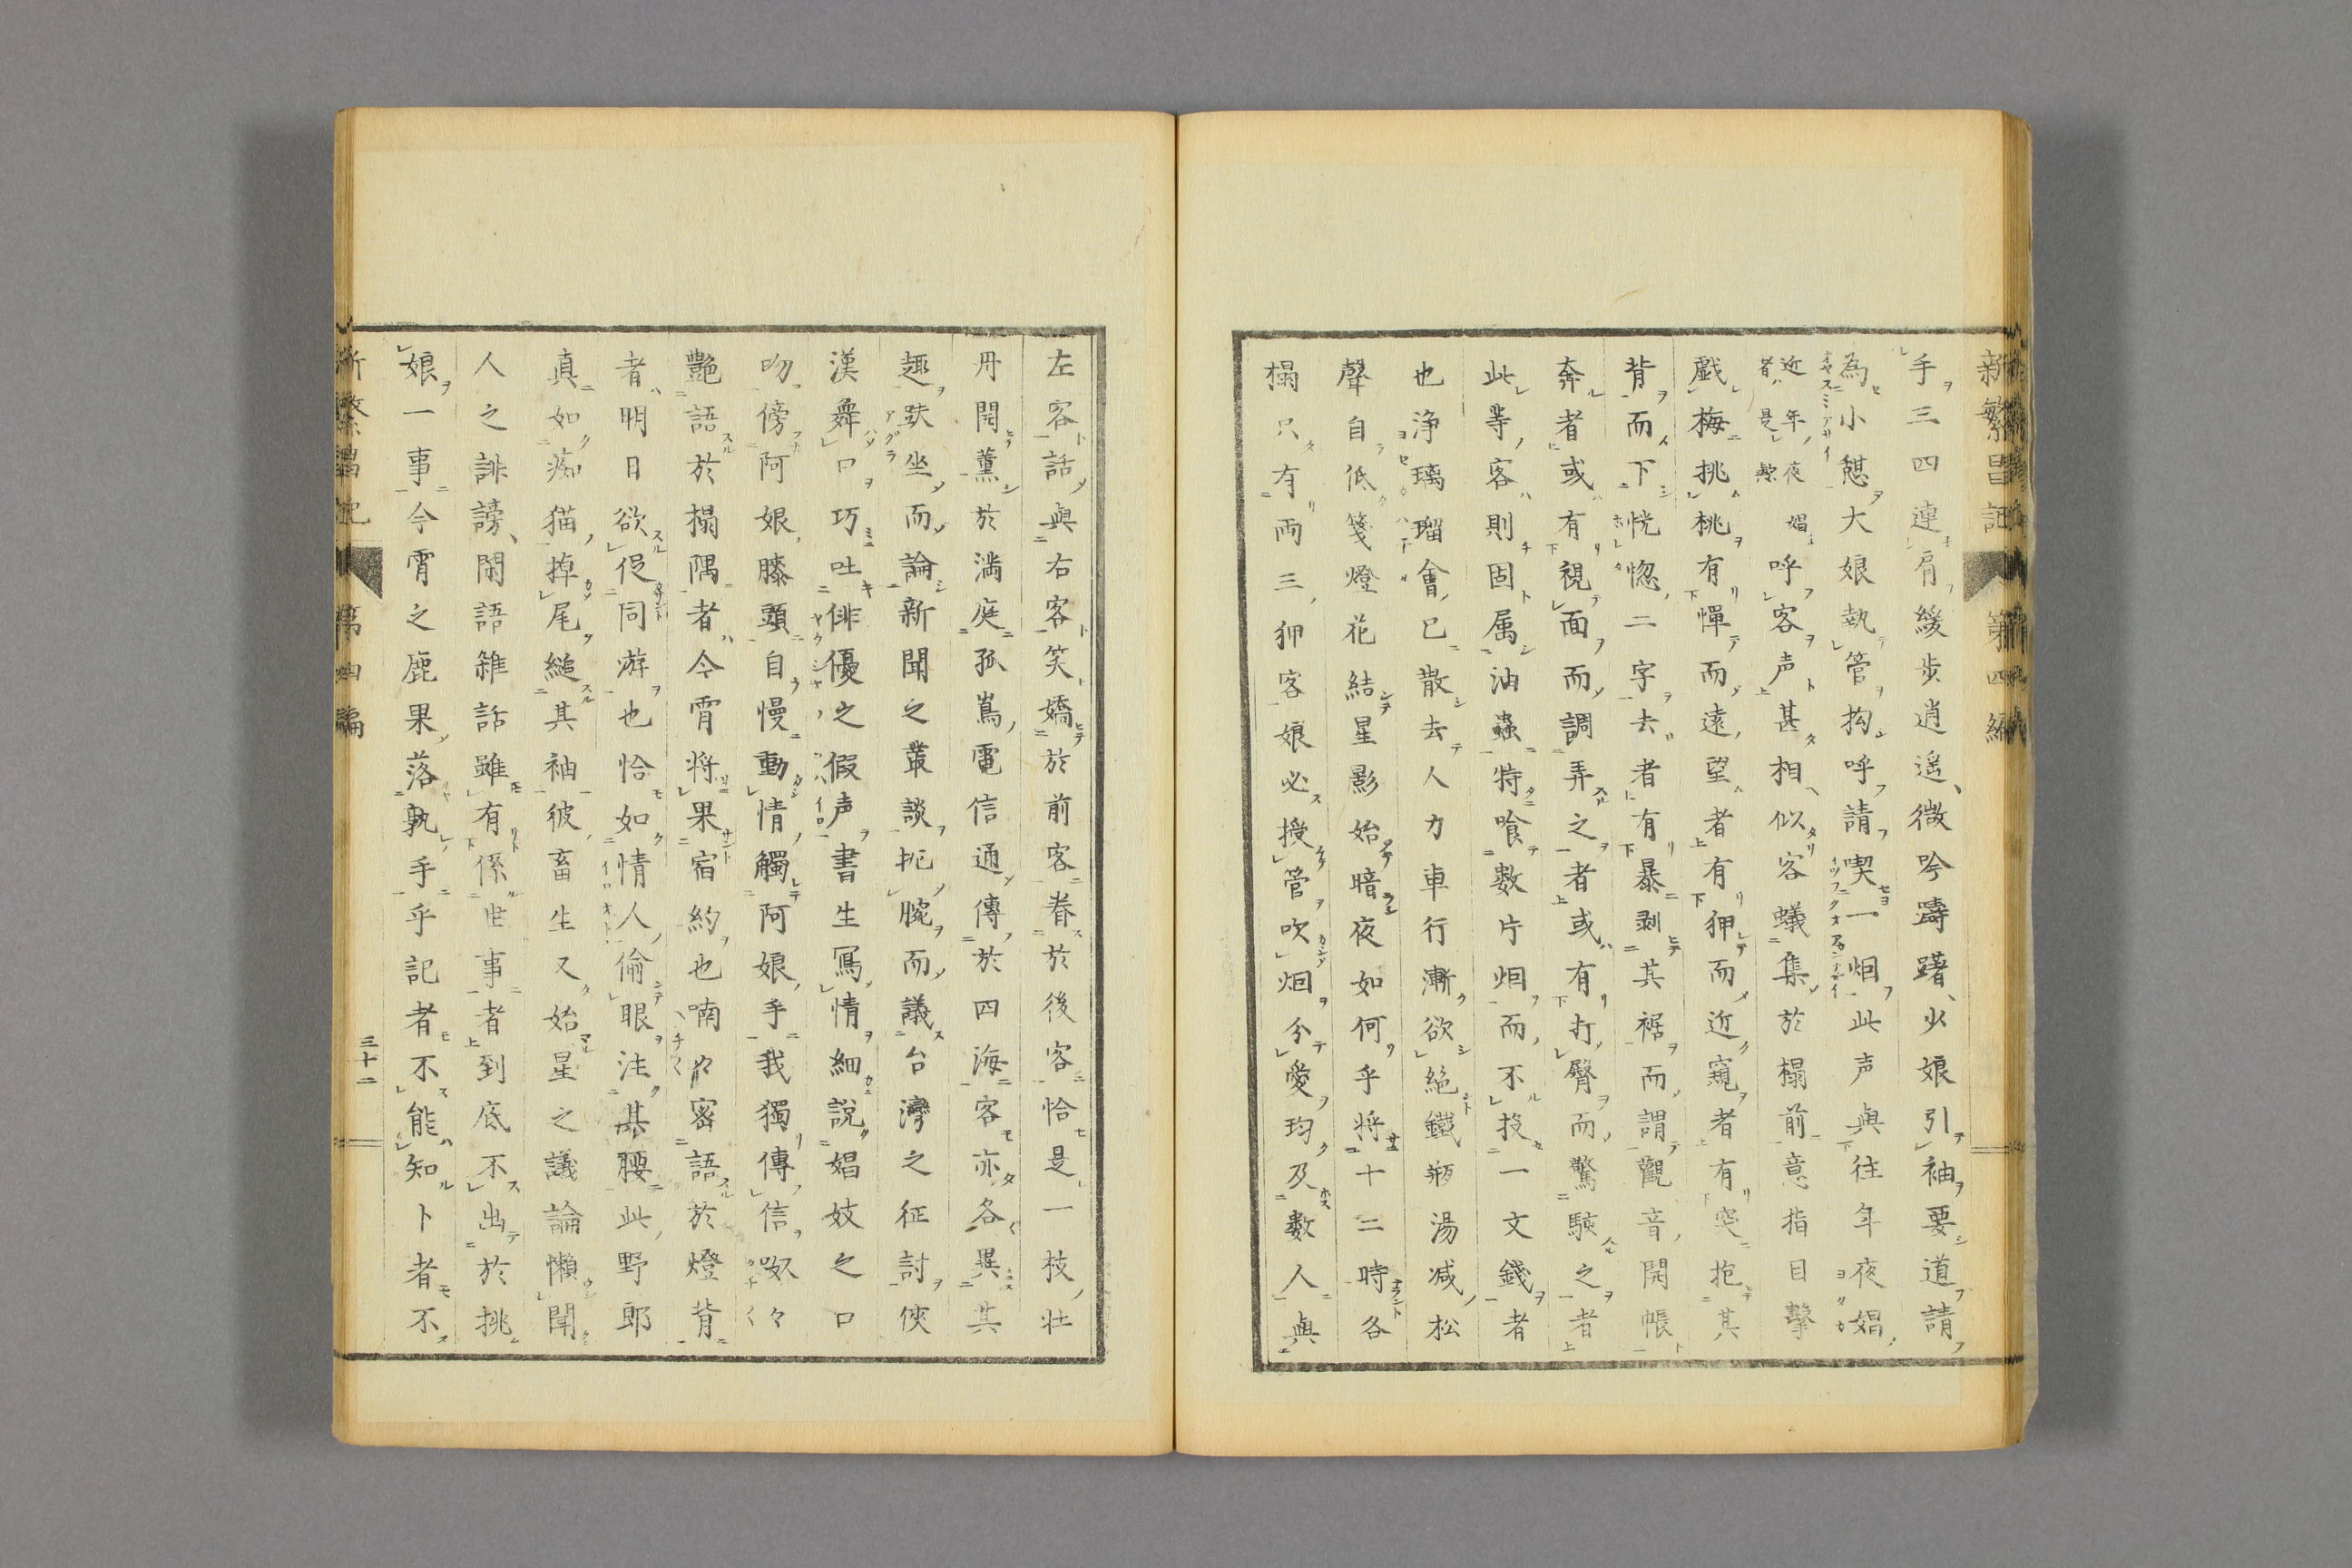 新繁昌記 第四編
手三四連肩緩步逍遙、微吟躊躇、少娘引袖要道請
為小憩大娘執管拘呼請喫一烟此声與往年夜娼
近年夜娼
者是無
呼客声甚相似客蟻集於榻前意指目擊
戲梅挑桃有憚而遠望者有狎而近窺者有突抱其
背而下恍惚二字去者有暴剥其裾而謂觀音開帳
奔者或有視面而調弄之者或有打臀而驚駭之者
此等客則固属油蟲特喰数片烟而不投一文錢者
也浄璃瑠會已散去人力車行漸欲絶鐵瓶湯减松
聲自低箋燈花結星影始暗夜如何乎将十二時各
榻只有両三狎客娘必授管吹烟分愛均及數人與
左客話與右客笑嬌於前客眷於後客恰是一枝牡
丹開薫於満庭孤蔦電信通傳於四海客亦各異其
趣趺坐而論新聞之叢談扼腕而議台灣之征討俠
漢舞口巧吐俳優之假声書生寫情細說娼妓之口
吻傍阿娘膝頭自慢動情觸阿娘手我獨傳信呶々
艷語於榻隅者今宵将果宿約也喃々密語於燈背
者明日欲促同游也恰如情人偷眼注其腰此野郎
真如痴猫掉尾縋其袖彼畜生又始星之議論懶聞
人之誹謗、閑語雑話雖有係世事者到底不出於挑
娘一事今宵之鹿果落孰手乎記者不能知卜者不
新繁昌記 第四編 三十二